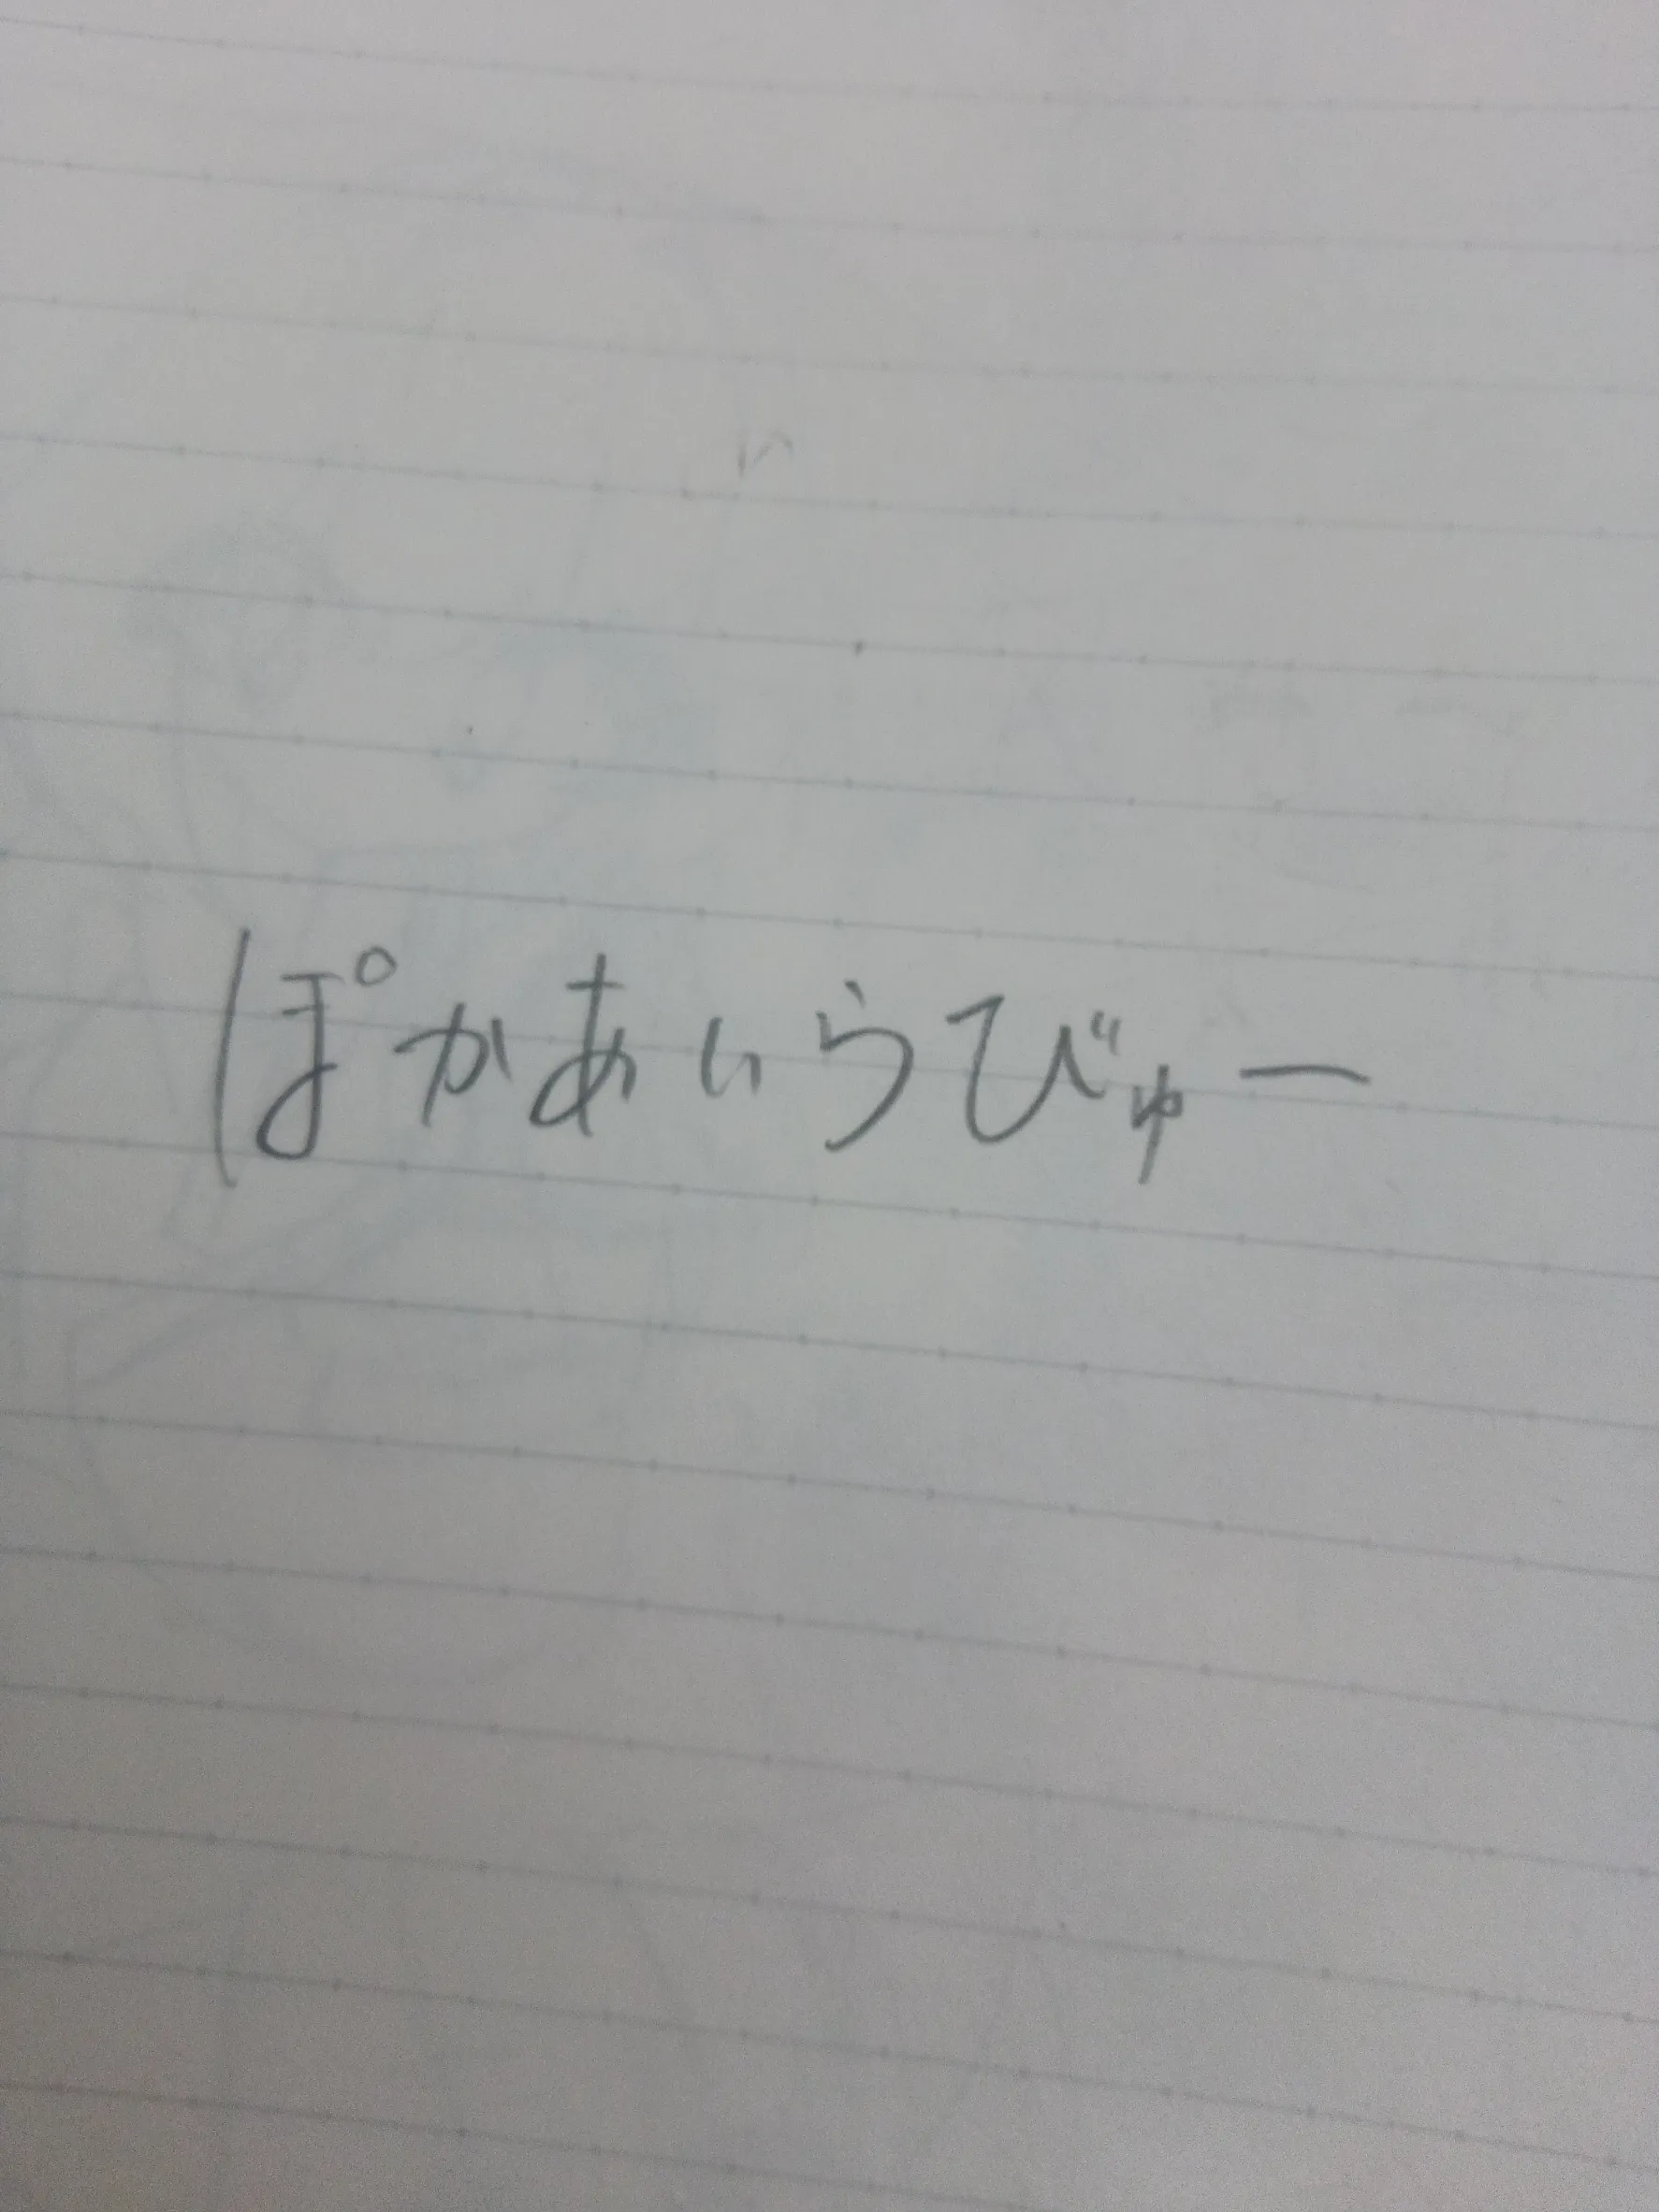 ぽかあいらびゅー